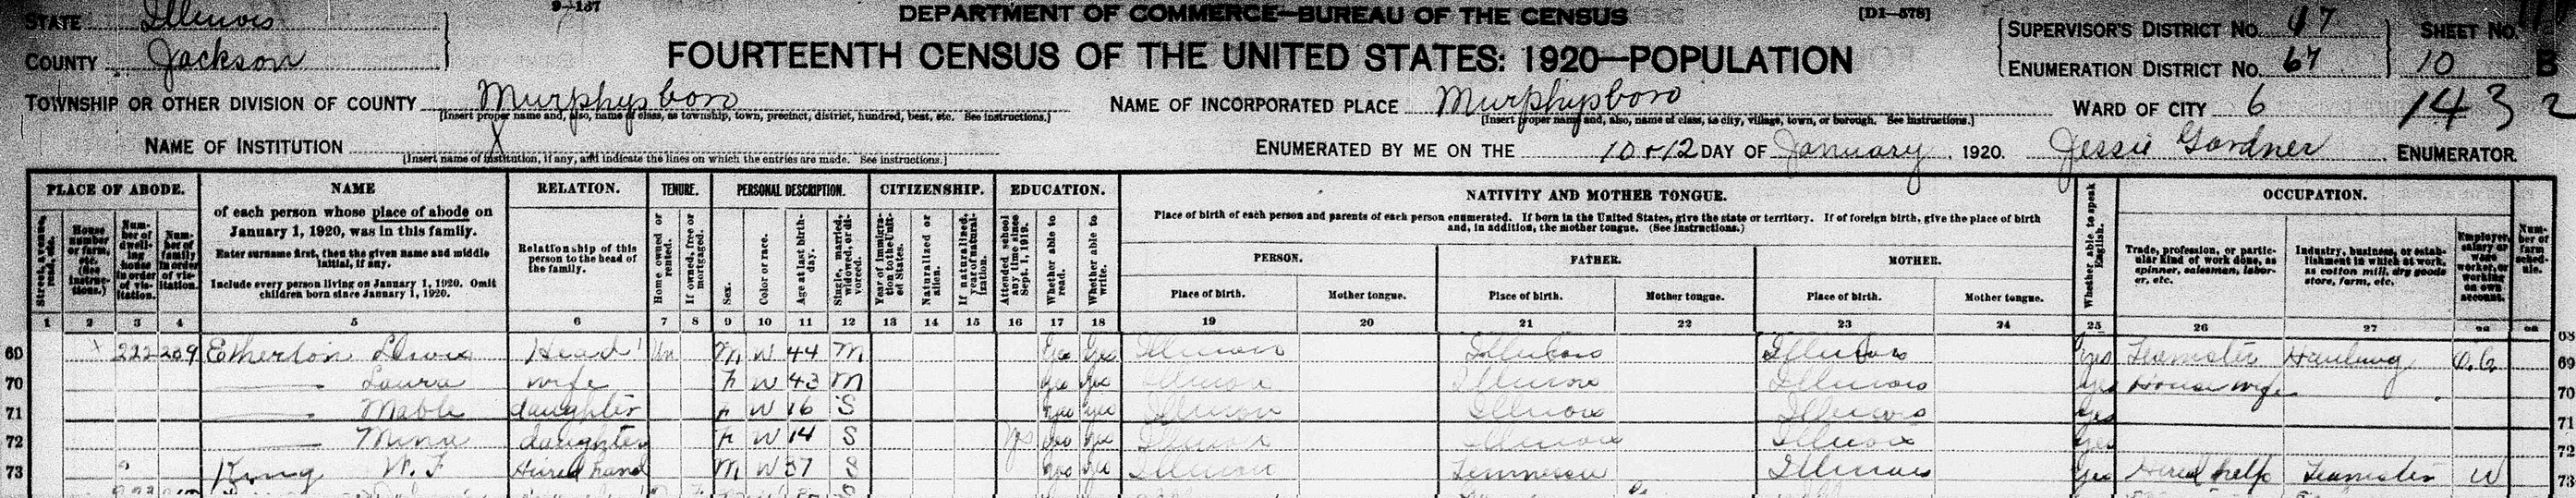 9—137
DEPARTMENT OF COMMERCE—BUREAU OF THE CENSUS
[D1—578]
STATE Illinois
COUNTY Jackson
FOURTEENTH CENSUS OF THE UNITED STATES: 1920—POPULATION
SUPERVISOR'S DISTRICT No. 47
ENUMERATION DISTRICT No. 67
SHEET No.
10 B
TOWNSHIP OR OTHER DIVISION OF COUNTY Murphysboro
[Insert proper name and, also, name of class, as township, town, precinct, district, hundred, beat, etc. See instructions.]
NAME OF INCORPORATED PLACE Murphysboro
[Insert proper name and, also, name of class, as city, village, town, or borough. See instructions.]
WARD OF CITY 6
143 2
NAME OF INSTITUTION X
[Insert name of institution, if any, and indicate the lines on which the entries are made. See instructions.]
ENUMERATED BY ME ON THE 10+12 DAY OF January, 1920. Jessie Gardner ENUMERATOR.
PLACE OF ABODE.
Street, avenue, road, etc.
House number or farm, etc. (See instructions.)
Number of dwelling house in order of visitation.
Number of family in order of visitation.
NAME
of each person whose place of abode on
January 1, 1920, was in this family.
Enter surname first, then the given name and middle
initial, if any.
Include every person living on January 1, 1920. Omit
children born since January 1, 1920.
RELATION.
Relationship of this
person to the head of
the family.
TENURE.
Home owned or rented.
If owned, free or mortgaged.
PERSONAL DESCRIPTION.
Sex.
Color or race.
Age at last birthday.
Single, married, widowed, or divorced.
CITIZENSHIP.
Year of immigration to the United States.
Naturalized or alien.
If naturalized, year of naturalization.
EDUCATION.
Attended school any time since Sept. 1, 1919.
Whether able to read.
Whether able to write.
NATIVITY AND MOTHER TONGUE.
Place of birth of each person and parents of each person enumerated. If born in the United States, give the state or territory. If of foreign birth, give the place of birth
and, in addition, the mother tongue. (See instructions.)
PERSON.
FATHER.
MOTHER.
Place of birth. Mother tongue. Place of birth. Mother tongue. Place of birth. Mother tongue.
Whether able to speak English.
OCCUPATION.
Trade, profession, or particular kind of work done, as spinner, salesman, laborer, etc.
Industry, business, or establishment in which at work, as cotton mill, dry goods store, farm, etc.
Employer, salary or wage worker, or working on own account.
Number of farm schedule.
1 2 3 4 5 6 7 8 9 10 11 12 13 14 15 16 17 18 19 20 21 22 23 24 25 26 27 28 29
68
69 222 239 Etherton Head M W 44 M Yes Yes Illinois Illinois Illinois yes Teamster Hauling O.A. 69
70 — Laura wife F W 43 M yes yes Illinois Illinois Illinois yes Housewife 70
71 — Mable daughter F W 16 S yes yes Illinois Illinois Illinois yes 71
72 — daughter F W 14 S yes yes yes Illinois Illinois Illinois yes 72
73 King W. F. Hired hand M W 37 S yes yes Illinois Tennessee Illinois yes Hired help Teamster W 73